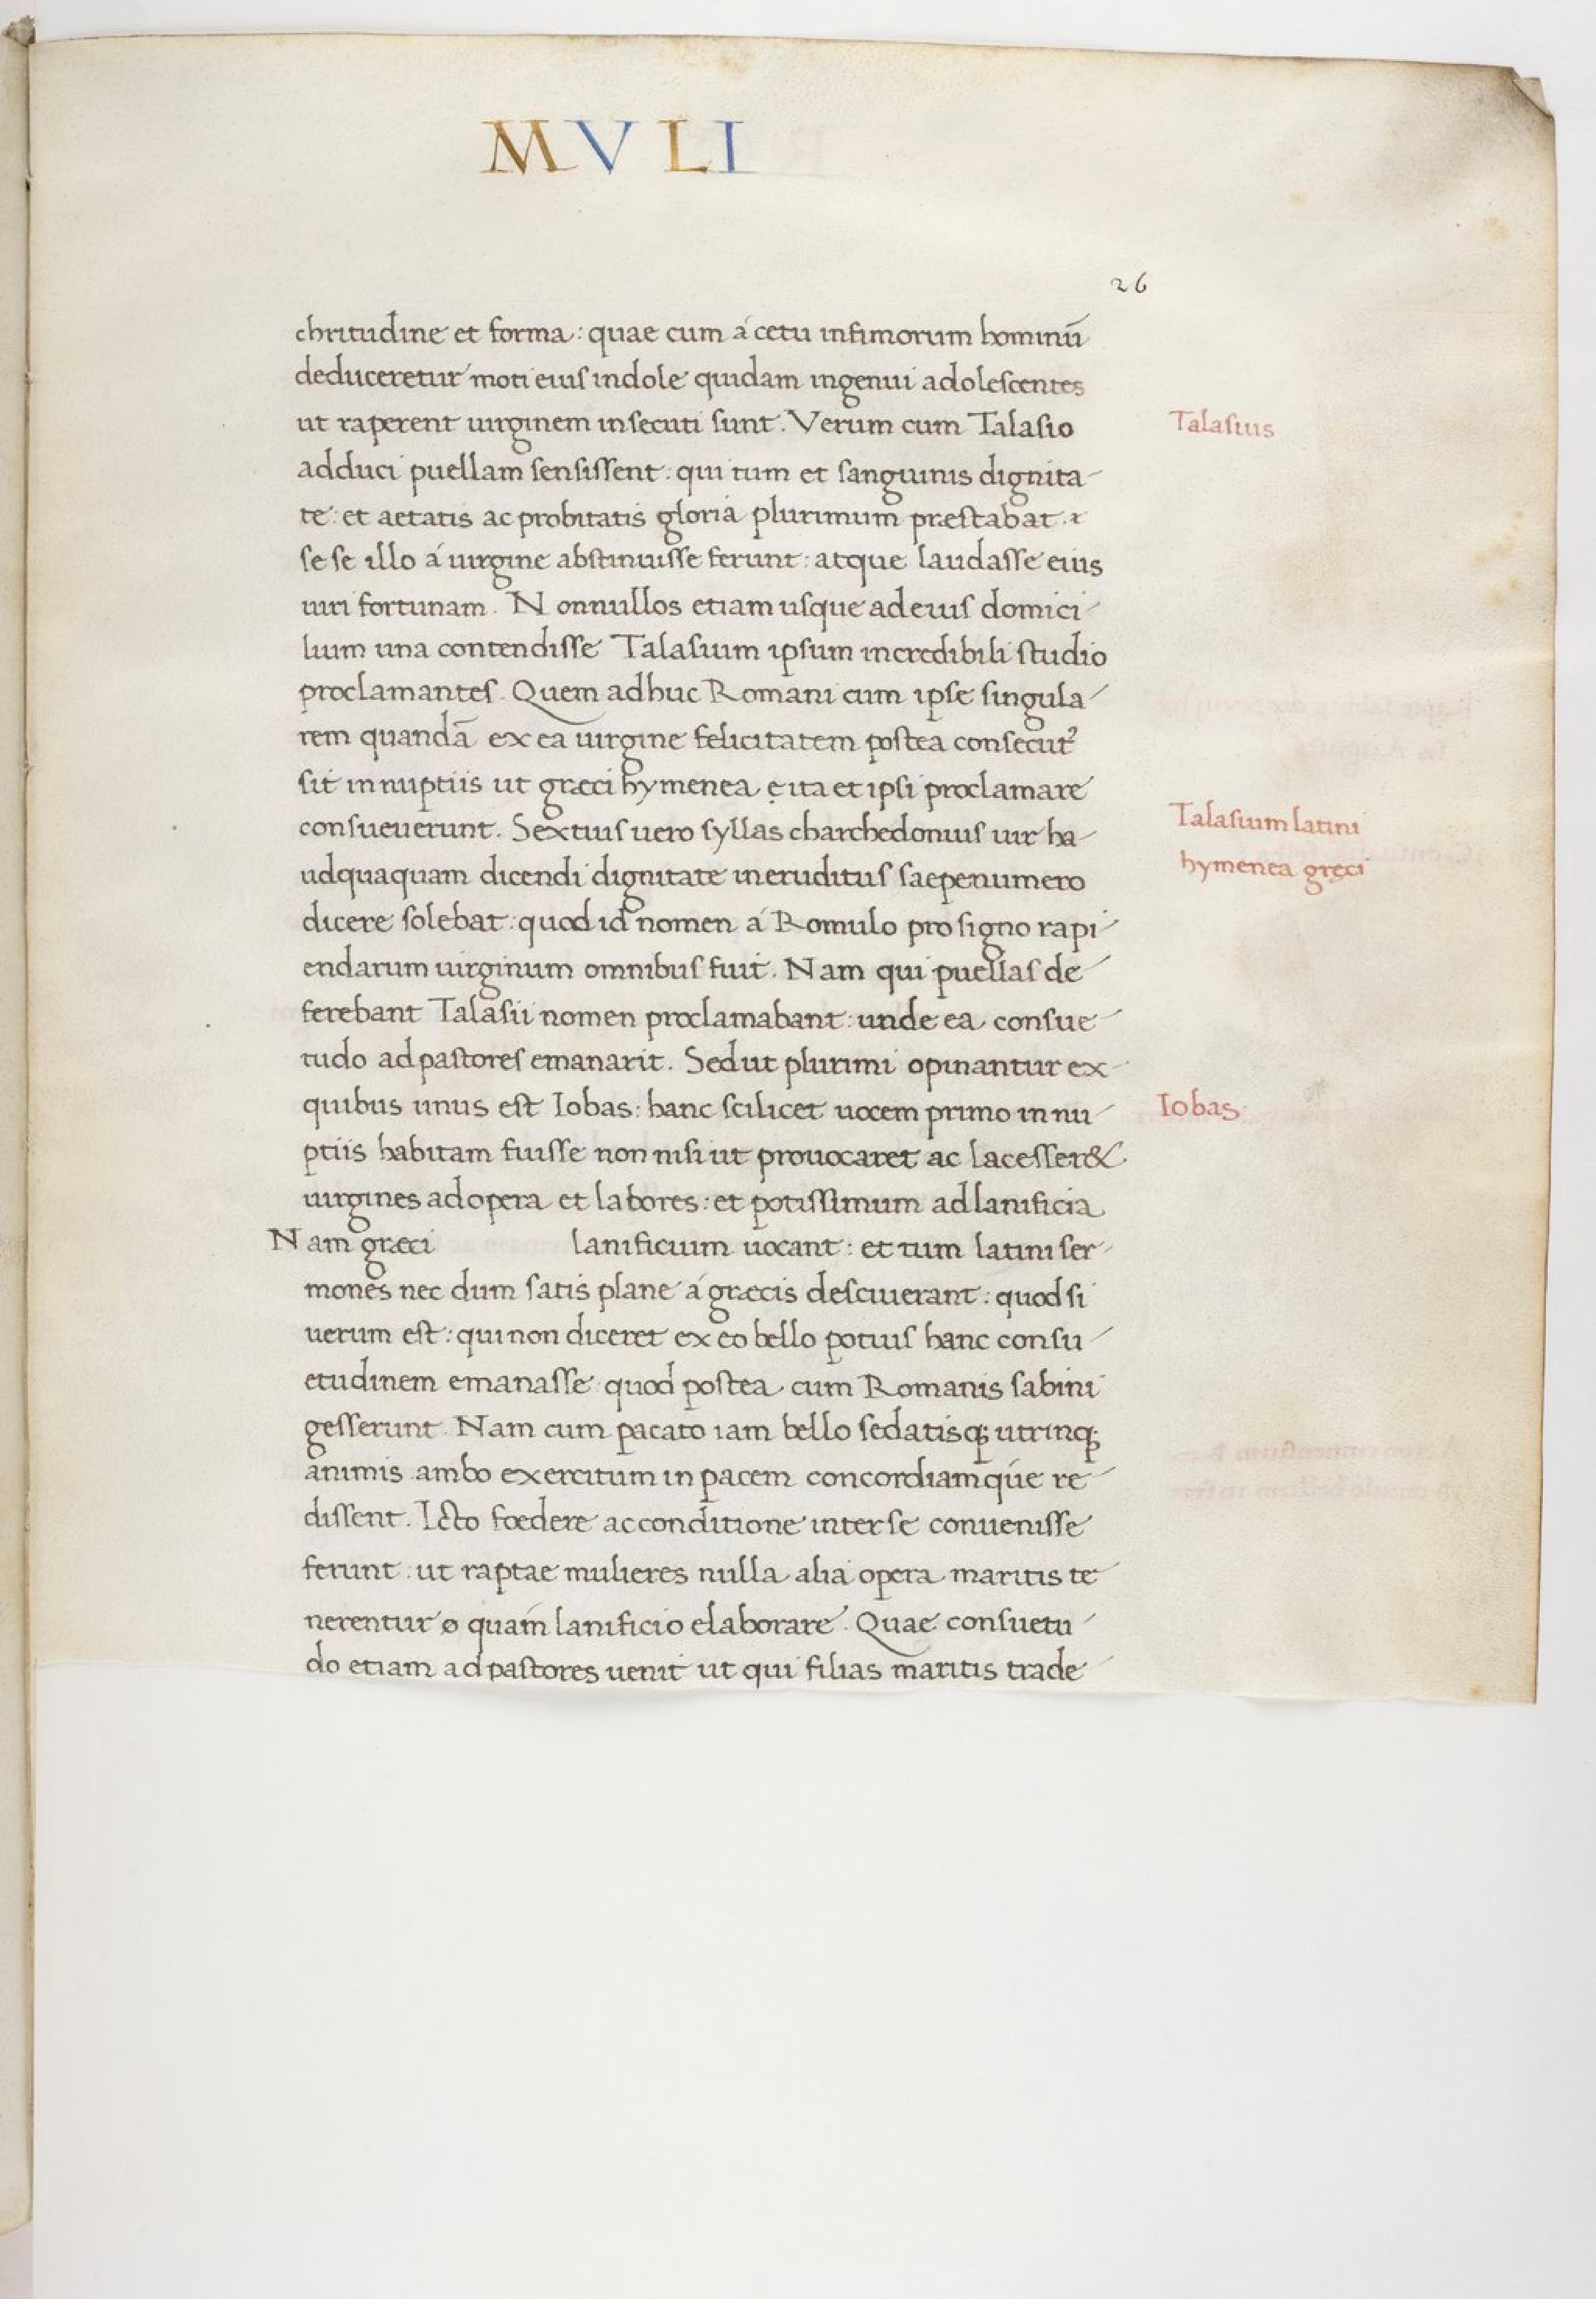 MVLI
26
chritudine et forma: quae cum á cetu infimorum hominū
deduceretur moti eius indole quidam ingenui adolescentes
ut raperent uirginem insecuti sunt. Verum cum Talasio
Talasius
adduci puellam sensissent: qui tum et sanguinis dignita-
te: et aetatis ac probitatis gloria plurimum præstabat.
se se illo á uirgine abstinuisse ferunt: atque laudasse eius
uiri fortunam. Nonnullos etiam usque ad eius domici-
lium una contendisse Talasium ipsum incredibili studio
proclamantes. Quem adhuc Romani cum ipse singula-
rem quandā ex ea uirgine felicitatem postea consecut᾽
sit in nuptiis ut græci hymenea ita et ipsi proclamare
Talasium latini
consueuerunt. Sextius uero syllas charchedonius uir ha-
hymenea gręci
udquaquam dicendi dignitate ineruditus saepenumero
dicere solebat: quod id nomen á Romulo pro signo rapi-
endarum uirginum omnibus fuit. Nam qui puellas de-
ferebant Talasii nomen proclamabant: unde ea consue-
tudo ad pastores emanarit. Sed ut plurimi opinantur ex-
quibus unus est Iobas: hanc scilicet uocem primo in nu-
Iobas
ptiis habitam fuisse non nisi ut prouocaret ac lacesser&
uirgines ad opera et labores: et potissimum ad lanificia
Nam græci lanificium uocant: et tum latini ser-
mones nec dum satis plane á græcis desciuerant: quod si
uerum est: qui non diceret ex eo bello potius hanc consu-
etudinem emanasse quod postea cum Romanis sabini
gesserunt. Nam cum pacato iam bello sedatisq; utrinq;
animis ambo exercitum in pacem concordiamque re-
dissent. Icto foedere ac conditione inter se conuenisse
ferunt: ut raptae mulieres nulla alia opera maritis te-
nerentur quam lanificio elaborare. Quae consuetu-
do etiam ad pastores uenit ut qui filias maritis trade-